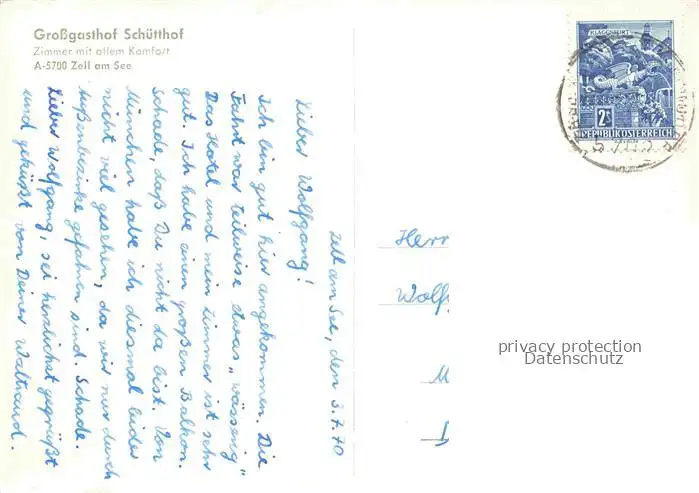 Großgasthof Schütthof
Zimmer mit allem Komfort
A-5700 Zell am See
Zell am See, den 3.7.70
Lieber Wolfgang!
Ich bin gut hier angekommen. Die
Fahrt war teilweise etwas „wässerig"
Das Hotel und mein Zimmer ist sehr
gut. Ich habe einen großen Balkon.
Schade, daß Du nicht da bist. Von
München habe ich diesmal leider
nicht viel gesehen, da wir nur durch
Außenbezirke gefahren sind. Schade.
Lieber Wolfgang, sei herzlichst gegrüßt
und geküßt von Deiner Waltraud.
KLAGENFURT
2S
REPUBLIK ÖSTERREICH
Herr
Wolf
M
privacy protection
Datenschutz